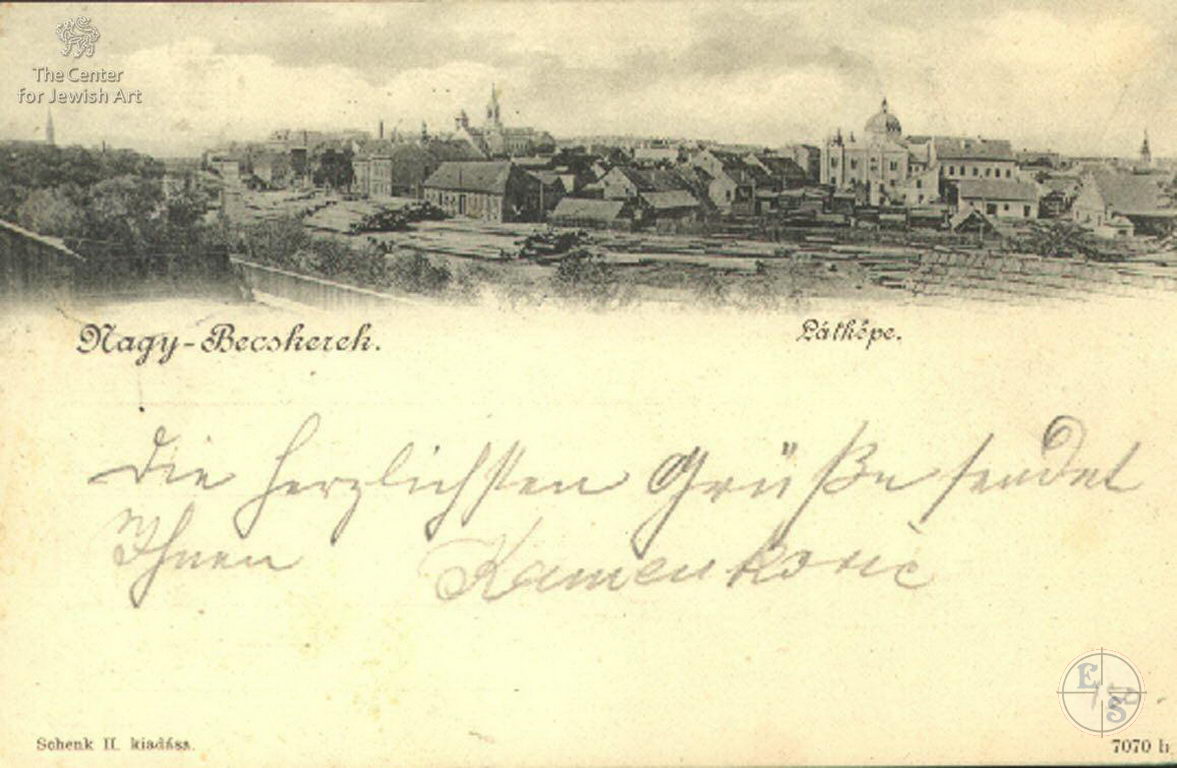 The Center
for Jewish Art
Nagy-Becskerek.
Látképe.
Die herzlichsten Grüße sendet
Ihnen Kamenković
E S
Schenk H. kiadása.
7070 h